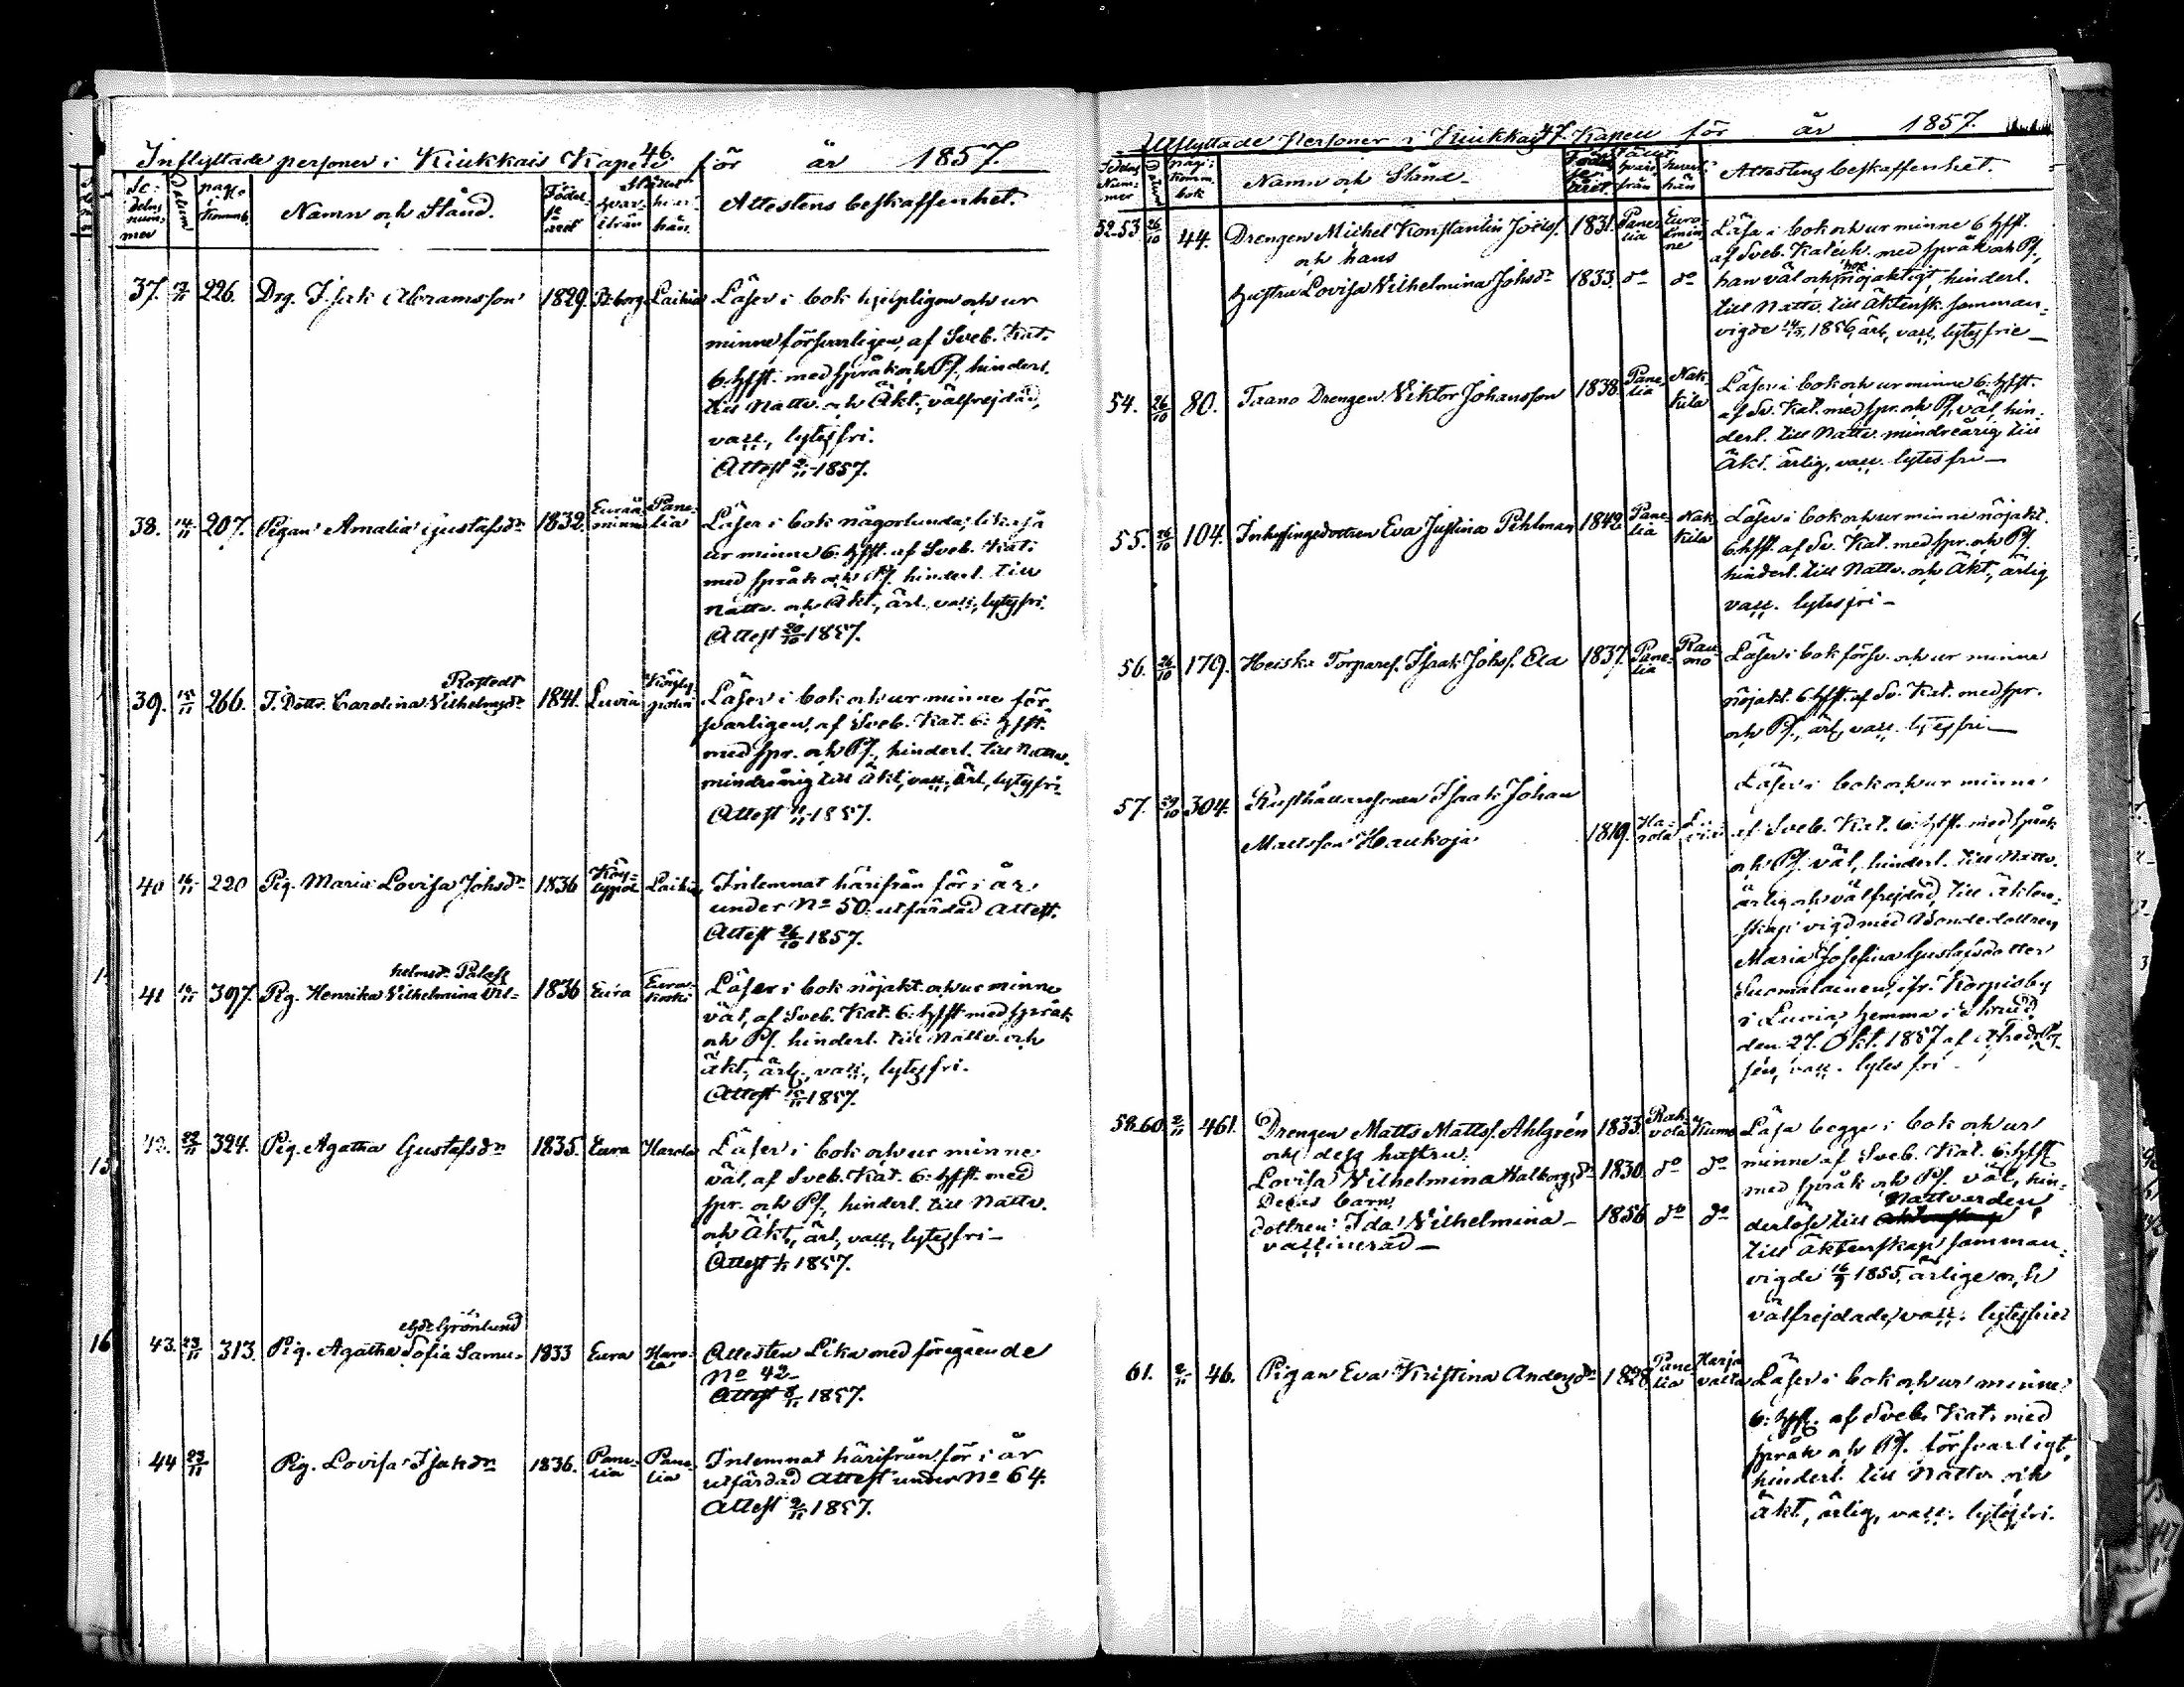 46.
Inflyttade personer i Kiukkais Kapell för år 1857.
Se-
delns
num-
mer
Datum
pag:
i
Kommb.
Namn och Stånd.
Födel-
se
året
Stället
hvar-
ifrån
hvar-
hän.
Attestens beskaffenhet.
37. 226. Drg. Isak Abramsson 1829. Laihia Läser i bok hjelpligen och ur
minne försvarligen, af Sveb. Kat.
6: hfst. med språk och Ps., hinderl.
till Nattv. och Äkt., välfrejdad,
vacc., lytesfri.
Attest 1857.
38. 14/11 207. Pigan Amalia Gustafsdr 1832. Euraå-
minne Pane-
lia Läser i bok någorlunda, likaså
ur minne 6: hfst. af Sveb. Kat.
med språk och Ps. hinderl. till
Nattv. och Äkt., ärl., vacc., lytesfri.
Attest 20/10 1857.
39. 15/11 266. I. Dottr. Carolina Vilhelmsdr Rostedt 1841. Luvia Läser i bok och ur minne för-
svarligen, af Sveb. Kat. 6: hfst.
med spr. och Ps., hinderl. till Nattv.
mindreårig till Äkt., vacc., ärl., lytesfri.
Attest 1857.
40 16/11 220 Pig. Maria Lovisa Johsdr 1836 Köy-
lypol. Laihia Inlemnat härifrån för i år
under No 50. utfärdad Attest.
Attest 26/10 1857.
41 397. Pig. Henrika Vilhelmina Vil-
helmsdr 1836 Eura Eura-
koski Läser i bok nöjakt. och ur minne
väl, af Sveb. Kat. 6: hfst. med språk
och Ps. hinderl. till Nattv. och
äkt., ärl., vacc., lytesfri.
Attest 1857.
42. 22/11 324. Pig. Agatha Gustafsdr 1835. Eura Harola Läser i bok och ur minne
väl, af Sveb. Kat. 6: hfst. med
spr. och Ps., hinderl. till Nattv.
och Äkt., ärl., vacc., lytesfri_
Attest 1857.
43. 23/11 313. Pig. Agatha Sofia Samu-
elsdr Grönlund 1833 Eura Haro-
la Attesten Lika med föregående
No 42_
Attest 1857.
44 23/11 Pig. Lovisa Isaksdr 1836. Pane-
lia Pane-
lia Inlemnat härifrån för i år
utfärdad Attest under No 64.
Attest 1857.
47.
Utflyttade Personer i Kiukkais Kapell för år 1857.
Sedelns
Num-
mer
Datum
pag: i
Komm.
bok
Namn och Stånd_
Födel-
se-
året
Stället
hvari-
från
hvart-
hän
Attestens beskaffenhet.
52-53 26/10 44. Drengen Michel Konstantin Joëls. 1831. Pane-
lia Euraå-
min-
ne Läsa i bok och ur minne 6 hfst.
och hans af Sveb. Katech. med språk och Ps.,
hustru Lovisa Vilhelmina Johsdr 1833. do do han väl och hon nöjaktigt, hinderl.
till Nattv. till Äktensk. samman-
vigde 1856, ärl., vacc., lytesfrie_
54. 26/10 80. Taano Drengen Viktor Johansson 1838. Pane-
lia Nak-
kila Läser i bok och ur minne 6: hfst.
af Sv. Kat. med spr. och Ps., väl, hin-
derl. till Nattv. mindreårig till
Äkt. ärlig, vacc. lytesfri_
55. 26/10 104. Inhysingedottren Eva Justina Pihlman 1842 Pane-
lia Nak-
kila Läser i bok och ur minne nöjakt.
6: hfst. af Sv. Kat. med spr. och Ps.
hinderl. till Nattv. och Äkt., ärlig
vacc. lytesfri_
56. 26/10 179. Heiska Torpares. Isaak Johss. Ela 1837. Pane-
lia Rau-
mo Läser i bok försv. och ur minne
nöjakt. 6: hfst. af Sv. Kat. med spr.
och Ps., ärl., vacc. lytesfri_
57. 304. Rusthållaresonen Isaak Johan
Mattsson Haukoja 1819. Ha-
rola Luvia Läser i bok och ur minne
af Sveb. Kat. 6: hfst. med språk
och Ps. väl, hinderl. till Nattv.
ärlig och välfrejdad, till äkten-
skap vigd med Bondedottren
Maria Josefina Gustafsdotter
Suomalainen, ifr. Korpisby
i Luvia, hemma i
den 27. Okt. 1857 af
vacc. lytesfri
58-60 2/11 461. Drengen Matts Mattss. Ahlgrén 1833. Kumo Läsa begge i bok och ur
och dess hustru. minne af Sveb. Kat. 6: hfst.
Lovisa Vilhelmina 1830. do do med språk och Ps. väl, hin-
Deras barn,
dottren: Ida Vilhelmina_ 1856 do do derlöse till Nattvarden,
vaccinerad_ till Äktenskap samman-
vigde 16/9 1855, ärlige och
välfrejdade, vacc. lytesfrie
61. 2/11 46. Pigan Eva Kristina Andersdr 1828 Pane-
lia Harja-
valta Läser i bok och ur minne
6: hfst. af Sveb. Kat. med
språk och Ps. försvarligt,
hinderl. till Nattv. och
äkt., ärlig, vacc. lytesfri.